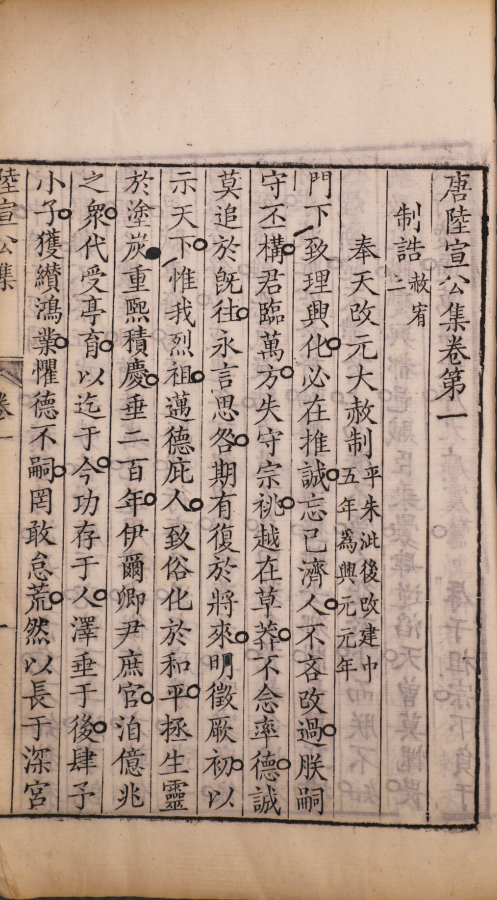 唐陸宣公集卷第一
制誥赦宥二
奉天改元大赦制平朱泚後改建中五年爲興元元年
門下致理興化必在推誠忘己濟人不吝改過朕嗣
守丕構君臨萬方失守宗祧越在草莽不念率德誠
莫追於旣往永言思咎期有復於將來明徵厥初以
示天下惟我烈祖邁德庇人致俗化於和平拯生靈
於塗炭重熙積慶垂二百年伊爾卿尹庶官洎億兆
之衆代受亭育以迄于今功存于人澤垂于後肆予
小子獲纘鴻業懼德不嗣罔敢怠荒然以長于深宮
陸宣公集 卷一 一